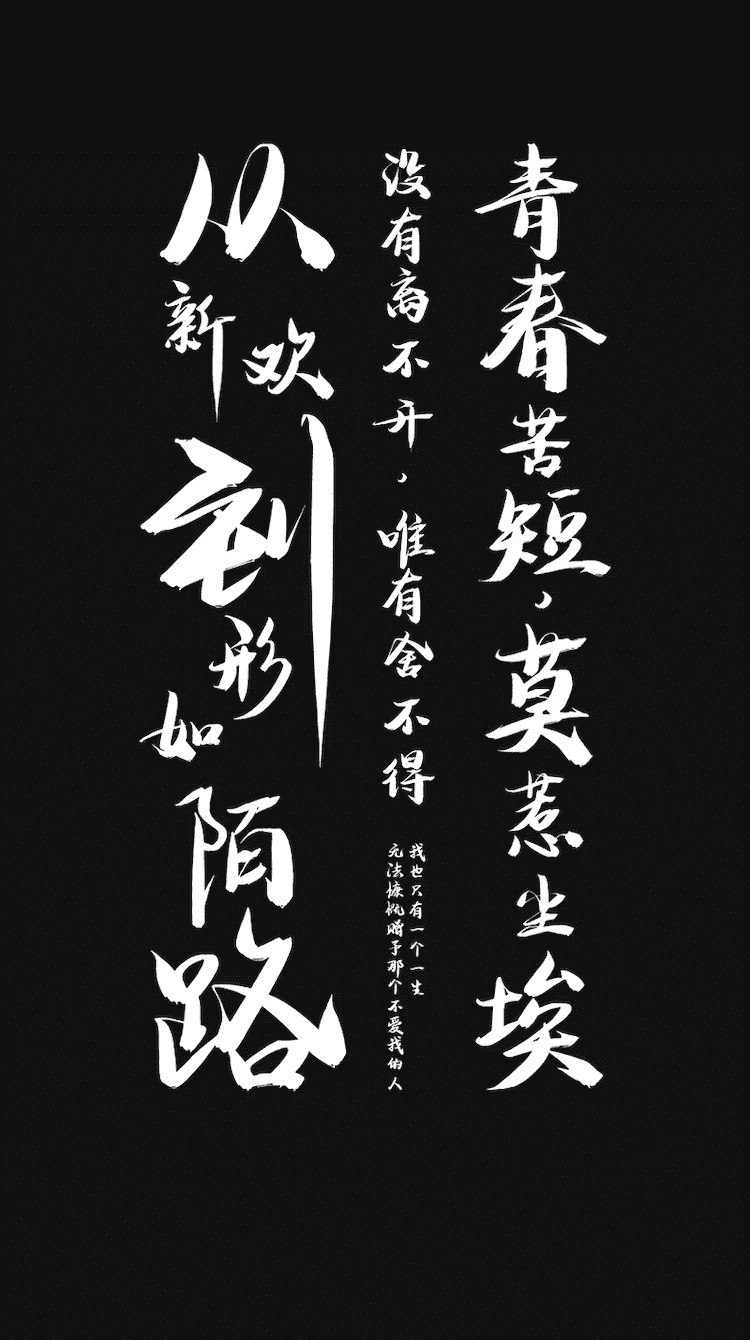 青春苦短，莫惹尘埃
没有离不开，唯有舍不得
我也只有一个一生
无法慷慨赠予那个不爱我的人
从新欢到形如陌路